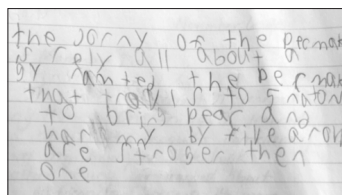 the jorny of the permat
is rely all about a
by named the permat
that travls to 5 naton
to bring pear and
harmny by five aron
are stroger then
one